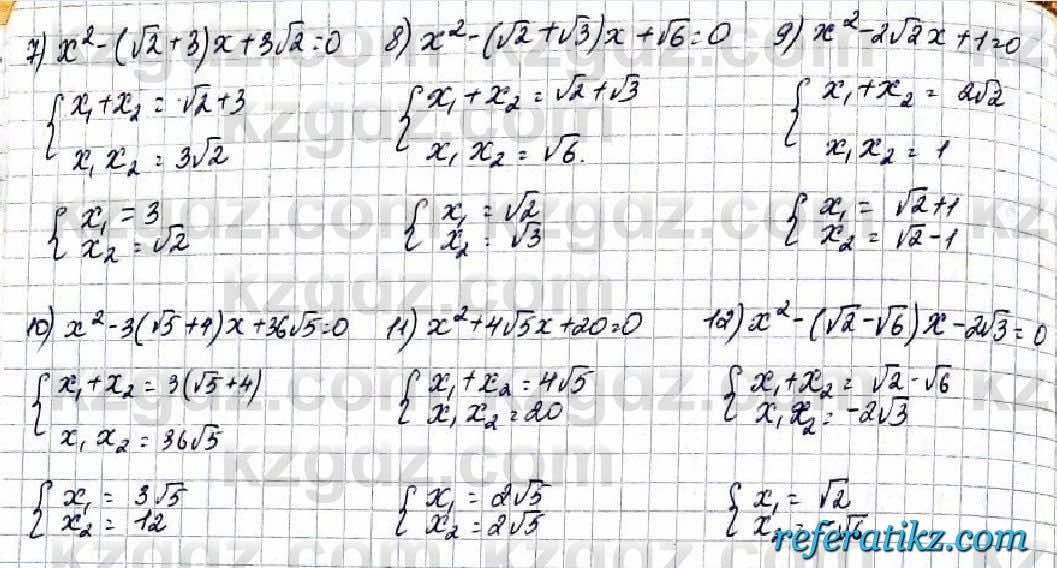 7) x² - (√2 + 3)x + 3√2 = 0
{ x₁ + x₂ = √2 + 3
x₁ x₂ = 3√2
{ x₁ = 3
x₂ = √2
8) x² - (√2 + √3)x + √6 = 0
{ x₁ + x₂ = √2 + √3
x₁ x₂ = √6.
{ x₁ = √2
x₂ = √3
9) x² - 2√2x + 1 = 0
{ x₁ + x₂ = 2√2
x₁ x₂ = 1
{ x₁ = √2 + 1
x₂ = √2 - 1
10) x² - 3(√5 + 4)x + 36√5 = 0
{ x₁ + x₂ = 3(√5 + 4)
x₁ x₂ = 36√5
{ x₁ = 3√5
x₂ = 12
11) x² + 4√5x + 20 = 0
{ x₁ + x₂ = 4√5
x₁ x₂ = 20
{ x₁ = 2√5
x₂ = 2√5
12) x² - (√2 - √6)x - 2√3 = 0
{ x₁ + x₂ = √2 - √6
x₁ x₂ = -2√3
{ x₁ = √2
x₂ = -√6
kzgdz.com
referatikz.com